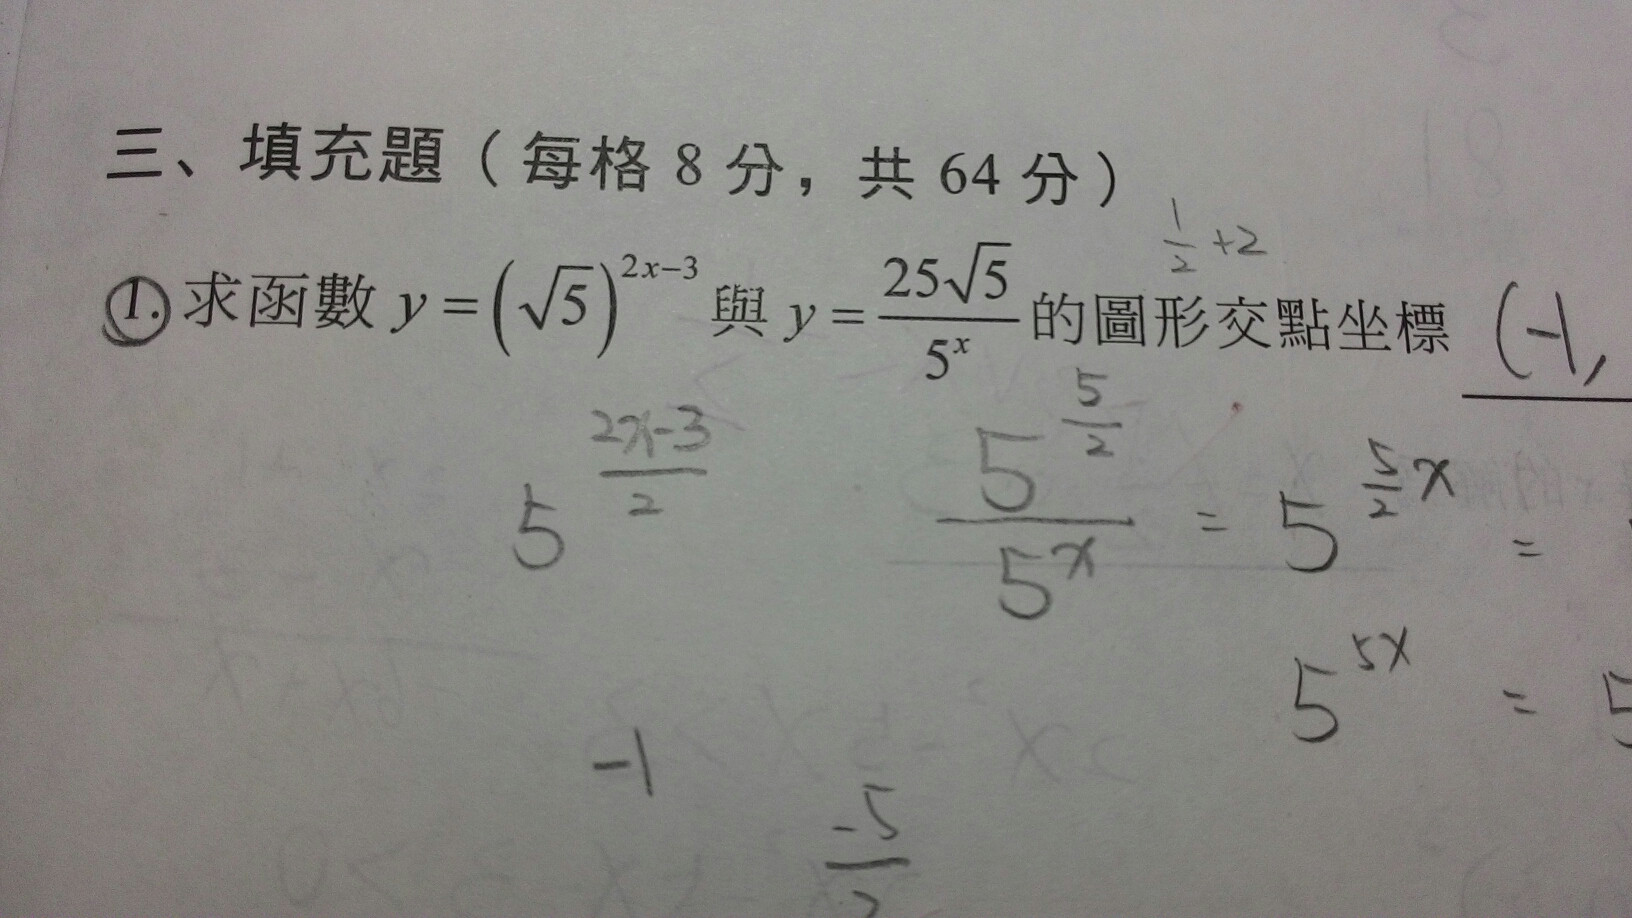 三、填充題（每格 8 分，共 64 分）
1/2 +2
1. 求函數 y = (√5)^(2x-3) 與 y = 25√5 / 5^x 的圖形交點坐標 (-1,
5^((2x-3)/2)
5^(5/2) / 5^x = 5^(5/2 x) =
5^(5x) = 5
-1
-5/2